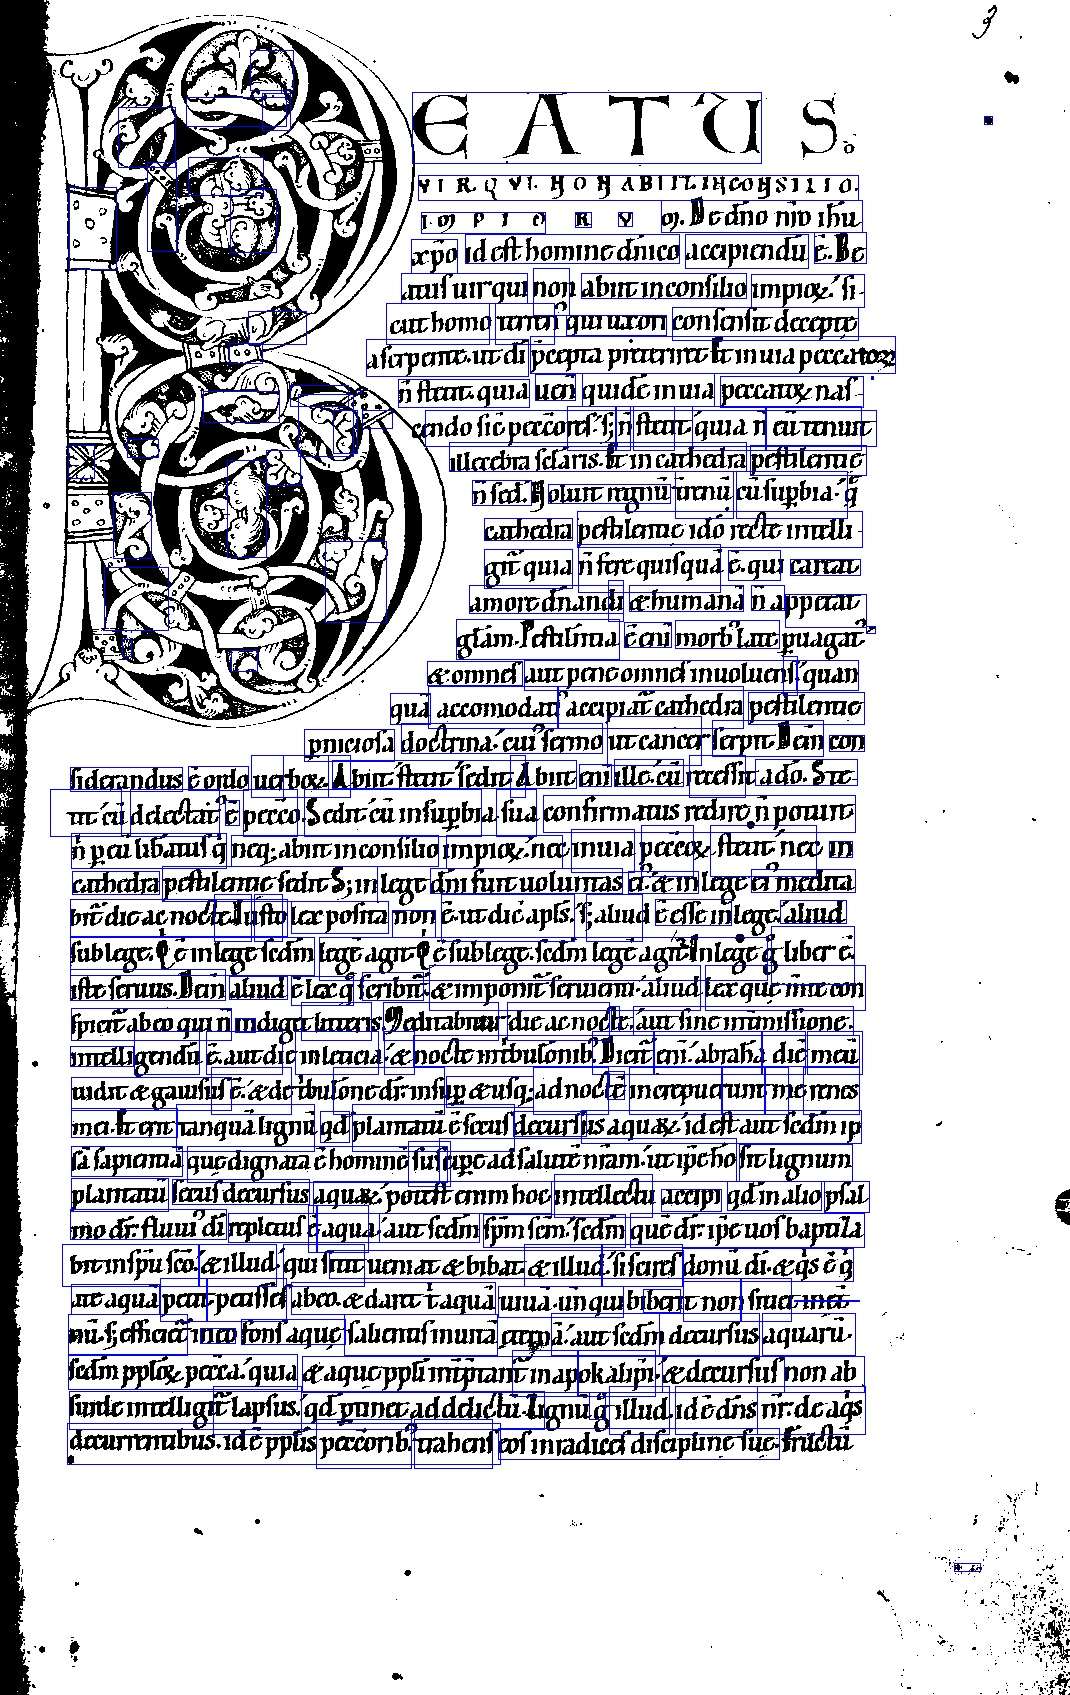 3
BEATUS
VIR QVI NON ABIIT IN CONSILIO
IMPIORVM. De dño nr̃o ih̃u
xp̃o id est homine dñico accipiendũ ẽ. Be
atus uir qui non abiit in consilio impioꝝ. si
cut homo qui uxori consensit decepte
a serpente. ut di p̃cepta p̃teriret. Et in uia peccatorꝝ
ñ stetit. quia uen quidẽ in uia peccatoꝝ nas
cendo sic peccores. s; ñ stetit. quia ñ eũ tenuit
illecebra sclaris. Et in cathedra pestilentie
ñ sed. Noluit regnũ trenũ cũ supbia. q̃
cathedra pestilentie ido recte intelli
git̃ quia ñ fere quisquã ẽ. qui careat
amore dñandi & humanã ñ appetat
glãm. Pestilentia ẽ eni morb' late puagat'
& omnes aut pene omnes inuoluens. quan
quã accomodat' accipiat̃ cathedra pestilentie
pniciosa doctrina. cui' sermo ut cancer serpit. Dein con
siderandus ẽ ordo uerboꝝ. Abiit. stetit. sedit. Abiit eni ille. cũ recessit a dõ. Ste
tit cũ delectat' ẽ pecc̃o. Sedit cũ in supbia sua confirmatus redire ñ potuit
ñ p eũ libatus q̃ neq; abiit in consilio impioꝝ. nec in uia pecc̃oꝝ stetit. nec in
cathedra pestilentie sedit. S; in lege dñi fuit uoluntas ei'. & in lege ei' medita
bit̃ die ac nocte. Iusto lex posita non ẽ. ut dic̃ apl̃s. s; aliud ẽ esse in lege. aliud
sub lege. Q ẽ in lege. sedm legẽ agit. Q ẽ sub lege. sedm legẽ agit̃. In lege g̃ liber ẽ.
iste seruus. Dein aliud ẽ lex q̃ scribit̃. & imponit̃ seruienti. aliud lex que mte con
spicit̃ ab eo qui ñ indiget litteris. Meditabitur die ac nocte. aut sine intmissione.
intelligendũ ẽ. aut die in leticia. & nocte in tbulonib'. Dicit̃ eni. abrahã diẽ meũ
uidit & gauisus ẽ. & de tbulone dr̃. insup & usq; ad noctẽ increpuerunt me renes
mei. Et erit tanquã lignũ qd plantatũ ẽ secus decursus aquaꝝ. id est aut sedm ip
sã sapientiã que dignata ẽ hominẽ suscipe ad salutẽ nr̃am. ut ip̃e hõ sit lignum
plantatũ secus decursus aquaꝝ. potest enim hoc intellectu accipi qd in alio psal
mo dr̃. fluui' di repletus ẽ aqua. aut sedm sp̃m sc̃m. sedm que dr̃. ip̃e uos baptiza
bit in sp̃u sc̃o. & illud. qui sitit ueniat & bibat. & illud. si scires donũ di. & q̃s ẽ q̃
a te aqua petit petisses ab eo. & daret t̃ aquã uiuã. un qui biberit non sitiet in et
nũ. s; efficiet̃ in eo fons aque salientis in uitã etnã. aut sedm decursus aquarũ.
sedm pploꝝ pecc̃a. quia & aque ppli intp̃tant̃ in apokalipsi. & decursus non ab
surde intelligit̃ lapsus. qd ptinet ad delictũ. Lignũ g̃ illud. id ẽ dñs nr̃. de aq̃s
decurrentibus. id ẽ pplis peccoribus. trahens eos in radices discipline sue. Fructũ